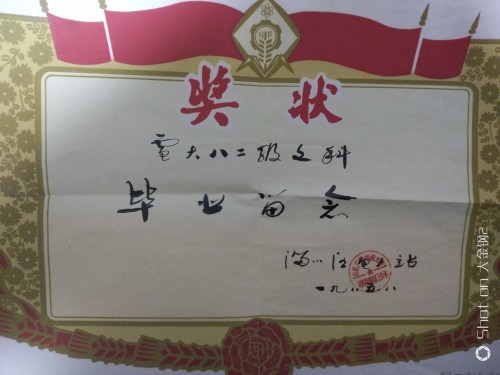 奖状
電大八二级文科
毕业留念
一九八五、八
Shot on 大金钢2